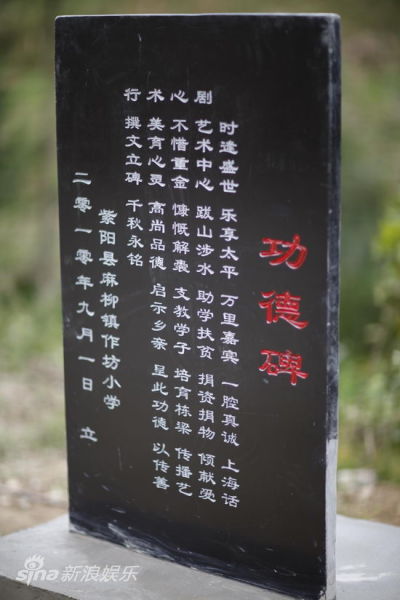 功德碑
时逢盛世 乐享太平 万里嘉宾 一腔真诚 上海话
剧 艺术中心 跋山涉水 助学扶贫 捐资捐物 倾献爱
心 不惜重金 慷慨解囊 支教学子 培育栋梁 传播艺
术 美育心灵 高尚品德 启示乡亲 呈此功德 以传善
行 撰文立碑 千秋永铭
紫阳县麻柳镇作坊小学
二零一零年九月一日 立
sina新浪娱乐